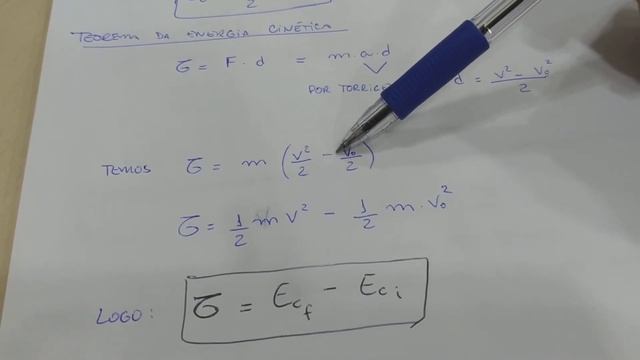 2
TEOREMA DA ENERGIA CINÉTICA
𝜏 = F . d = m . a . d
POR d = (v² - v₀²)/2
TEMOS 𝜏 = m (v²/2 - v₀/2)
𝜏 = 1/2 m v² - 1/2 m . v₀²
LOGO: 𝜏 = Ecf - Eci